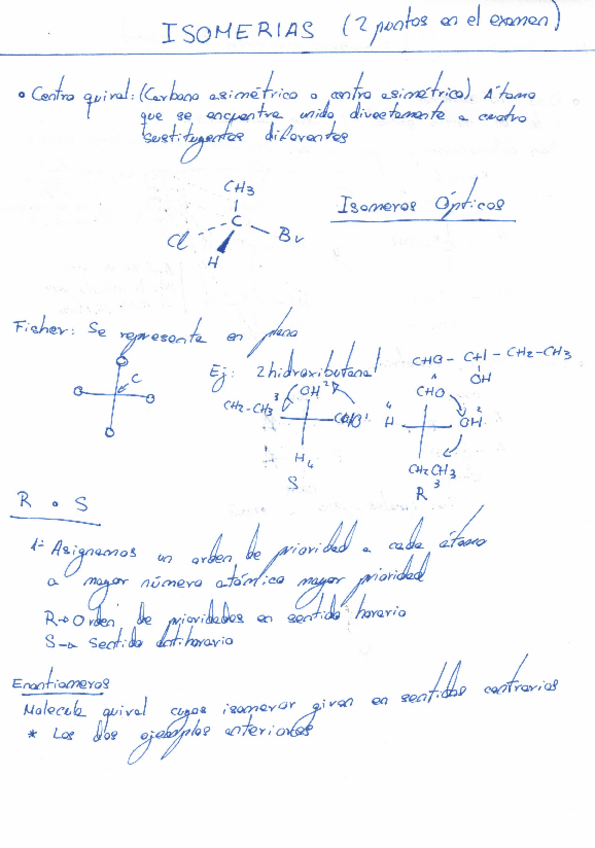 ISOMERIAS (2 puntos en el examen)
• Centro quiral: (Carbono asimétrico o centro asimétrico). Átomo
que se encuentra unido directamente a cuatro
sustituyentes diferentes
CH3
C
Cl
Br
H
Isomeros Ópticos
Ficher: Se representa en plano
C
Ej: 2hidroxibutanal
CHO - CH - CH2 - CH3
OH
CH2-CH3 3
OH 2 R
CHO 1
H 4
S
CHO
4 H
OH 2
CH2CH3
R 3
R o S
1º Asignamos un orden de prioridad a cada átomo
a mayor número atómico mayor prioridad
R→Orden de prioridades en sentido horario
S→ Sentido antihorario
Enantiomeros
Molecula quiral cuyos isomeros giran en sentidos contrarios
* Los dos ejemplos anteriores